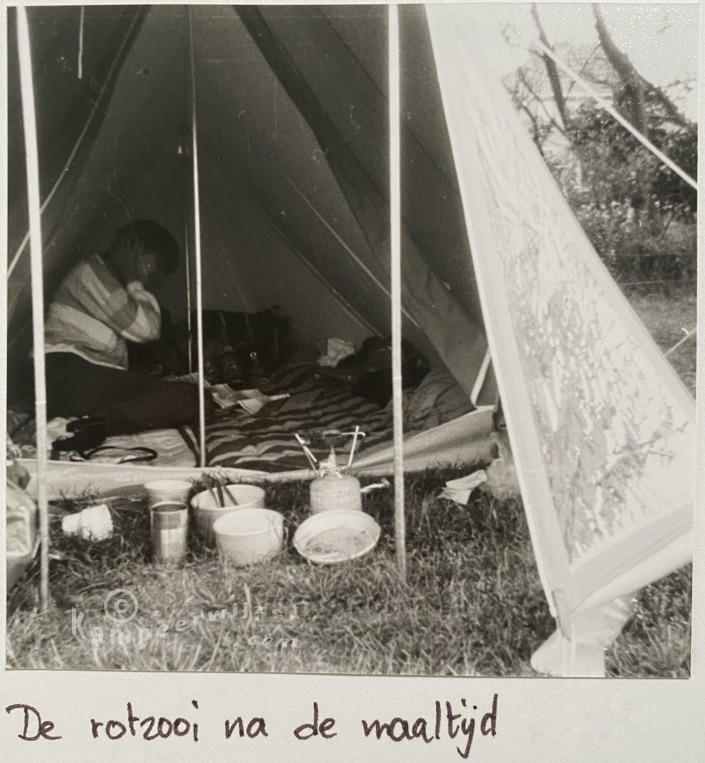 © Kampeerwijzer
.com
De rotzooi na de maaltijd